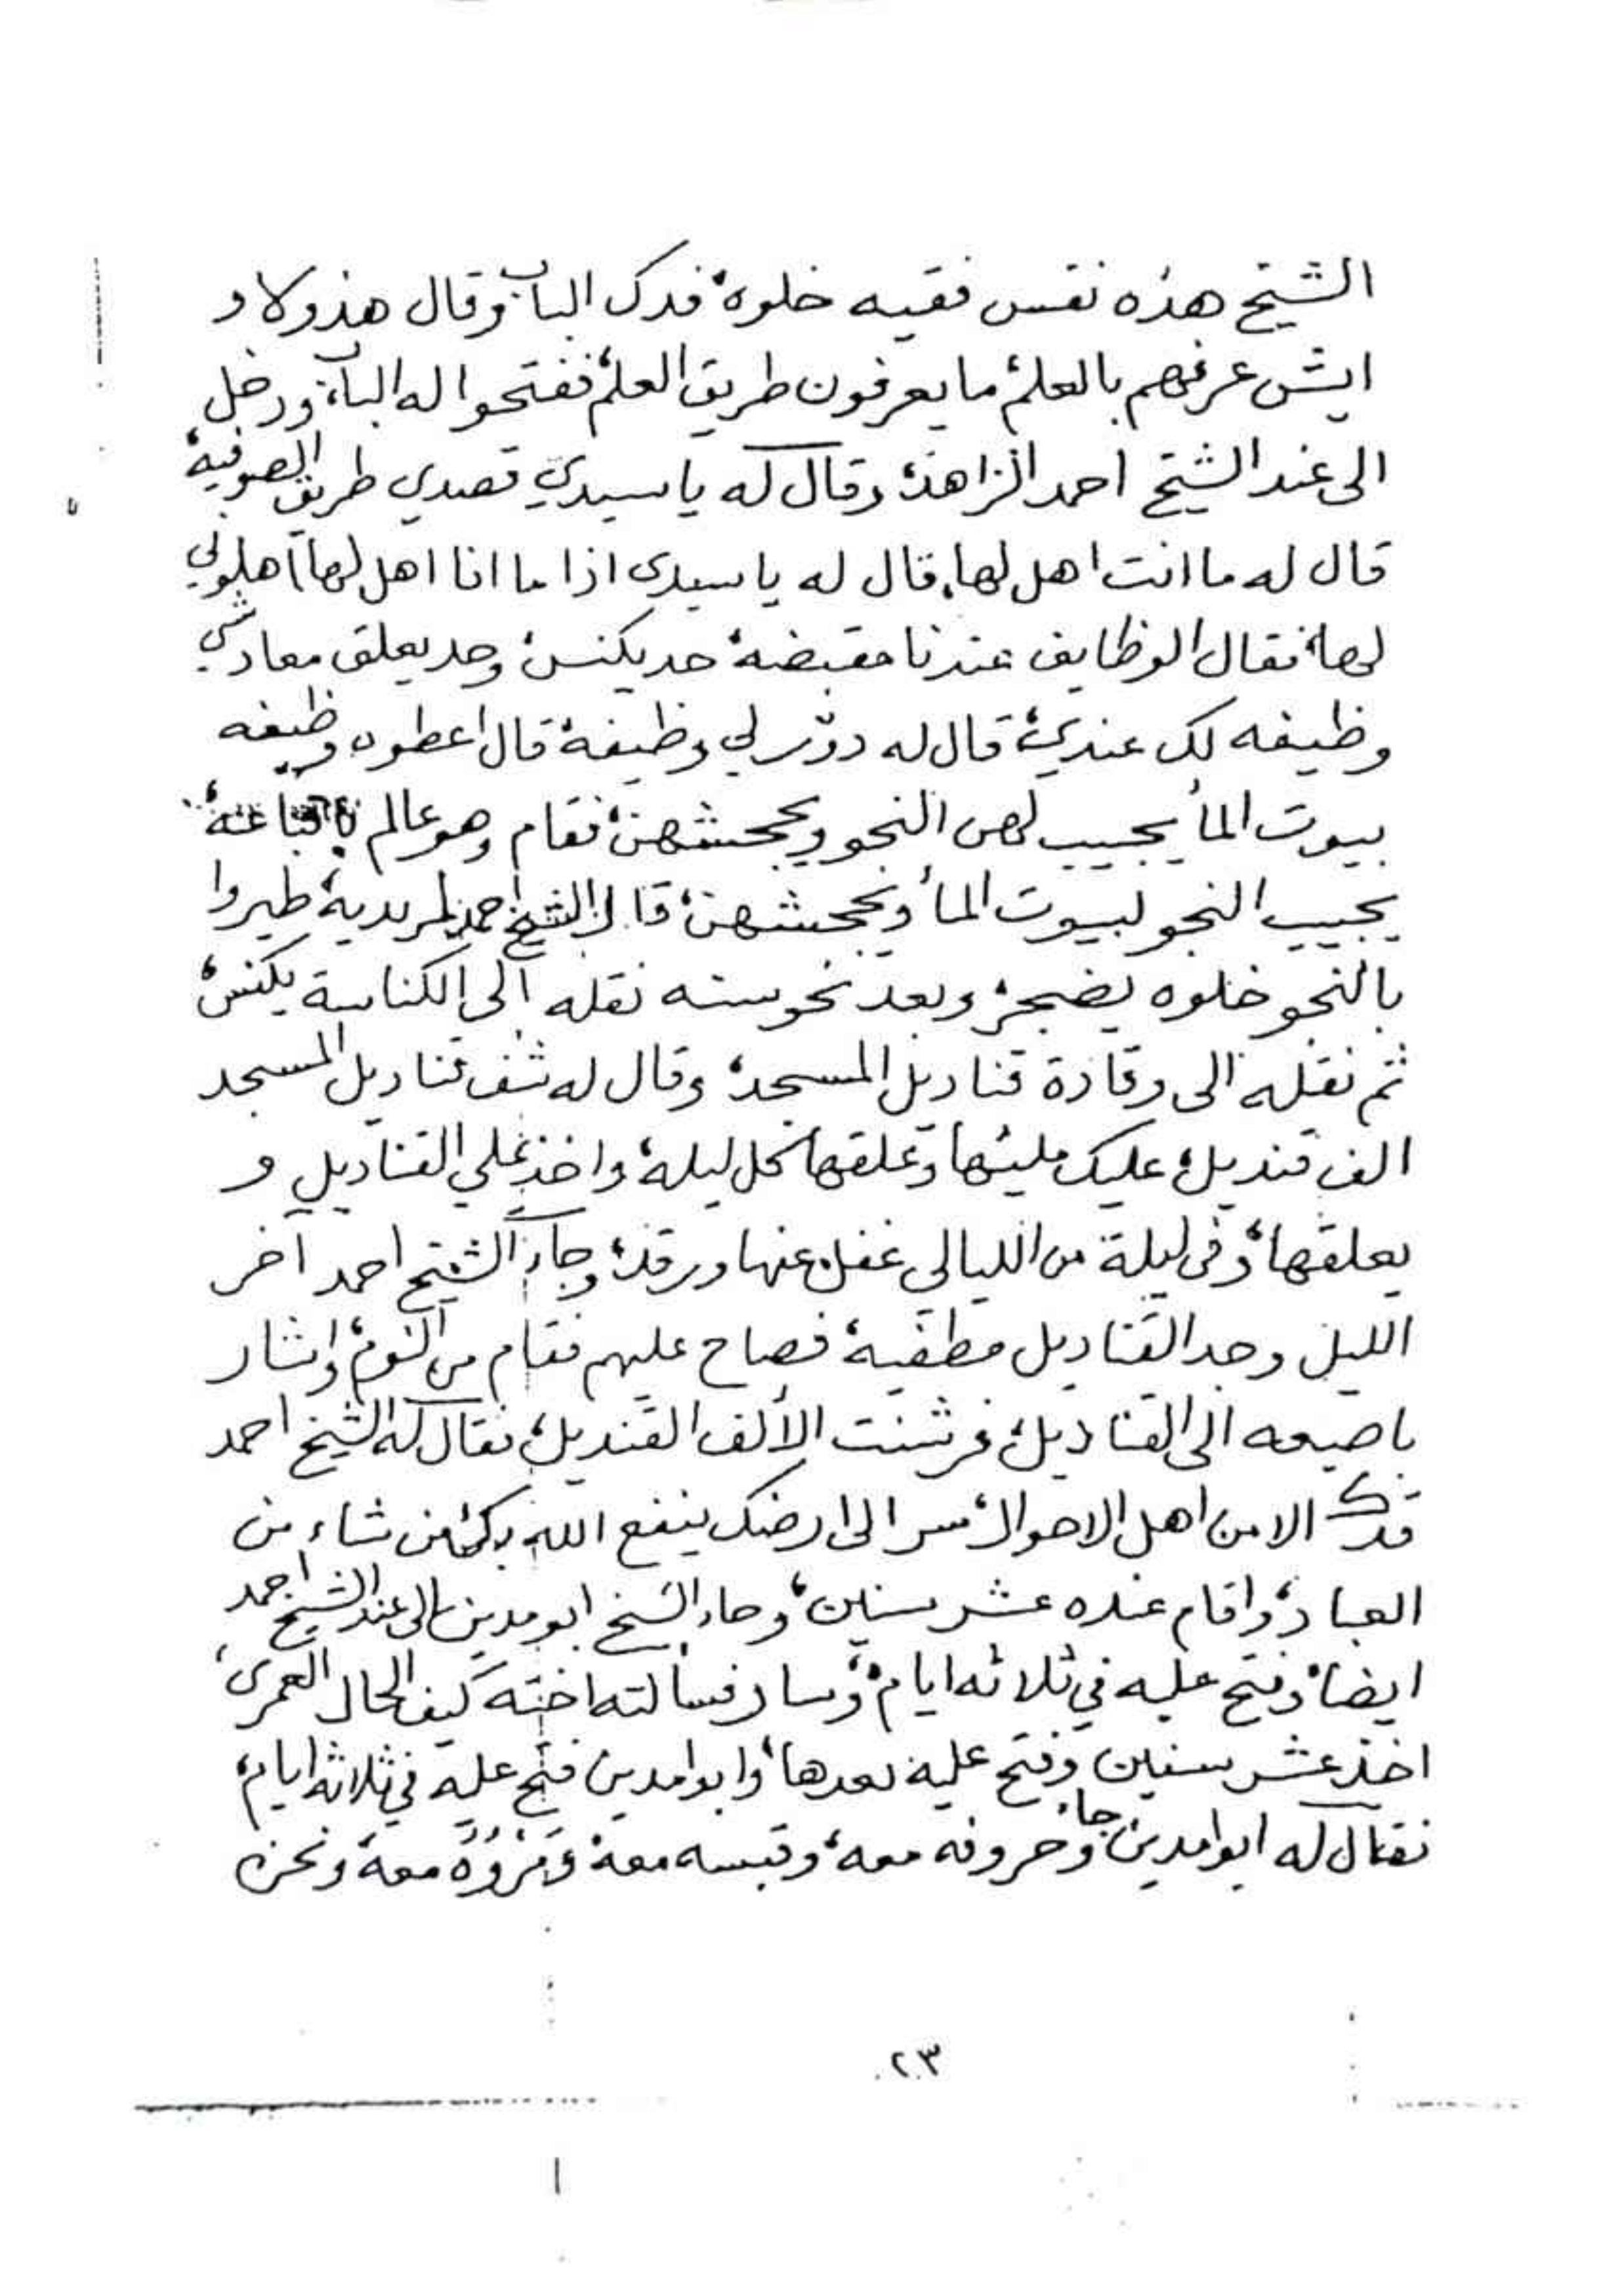 الشيخ هذه نفس فقيه خلوة، فدك الباب، وقال هذولا و
ايش عرفهم بالعلم، ما يعرفون طريق العلم، ففتحوا له الباب، ودخل
الى عند الشيخ احمد الزاهد، وقال له يا سيدي قصدي طريق الصوفية،
قال له ما انت اهل لها، قال له يا سيدى اذا ما انا اهل لها اهلوني
لها، فقال الوظايف عندنا مقبضة، حد يكنس، وحد يعلق معاد شي
وظيفه لك عندي، قال له دوّر لي وظيفة، قال اعطوه وظيفه
بيوت المأ يجيب لهن النجو ويجحشهن، فقام وهو عالم
يجيب النجو لبيوت المأ ويجحشهن، قال الشيخ احمد لمريديه، طيروا
بالنجو خلوه يضجر، وبعد نحو سنه نقله الى الكناسة يكنس،
ثم نقله الى وقادة قناديل المسجد، وقال له شف قناديل المسجد
الف قنديل، عليك مليها وعلقها كل ليلة، واخذ يملي القناديل و
يعلقها، وفي ليلة من الليالى غفل عنها ورقد، وجاء الشيخ احمد آخر
الليل وجد القناديل مطفية، فصاح عليهم فقام من النوم، واشار
باصبعه الى القناديل، فرشنت الألف القنديل، فقال له الشيخ احمد
قدك الا من اهل الاحوال، سر الى ارضك ينفع الله بك من شاء من
العباد، واقام عنده عشر سنين، وجاء الشيخ ابو مدين الى عند الشيخ احمد
ايضا، وفتح عليه في ثلاثه ايام، وسار فسألته اخته كيف الحال العمرى،
اخذ عشر سنين وفتح عليه بعدها، وابوا مدين فتح عليه في ثلاثه ايام،
فقال له ابوا مدين جاء وحروفه معه، وقبسه معه، ومَرْوُه معه، ونحن
٢٣